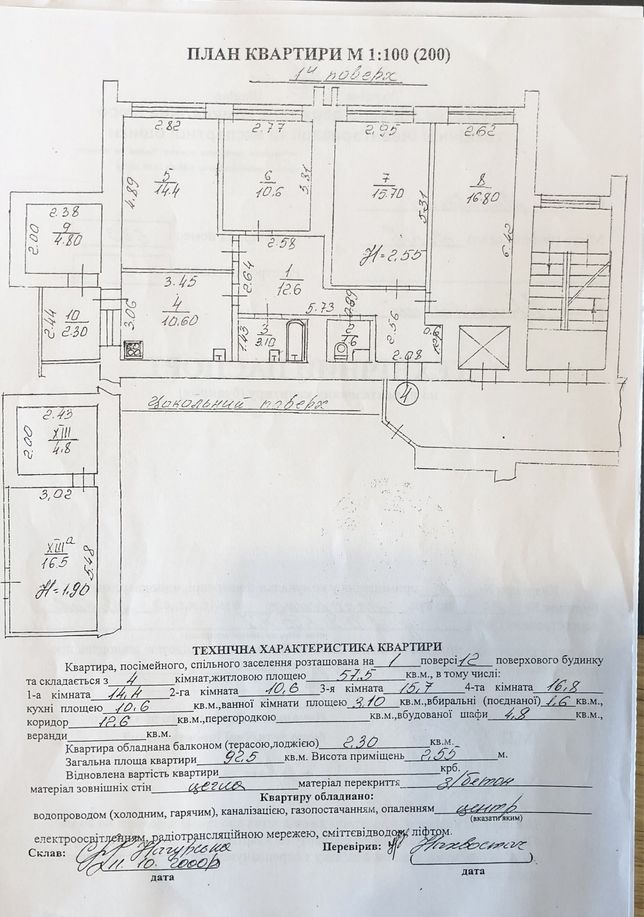 ПЛАН КВАРТИРИ М 1:100 (200)
1й поверх
2.82
2.77
2.95
2.62
5
14.4
4.89
6
10.6
5.31
7
15.70
5.31
8
16.80
6.42
H=2,55
2.38
9
4.80
2.00
2.58
2.64
1
12.6
5.73
3.45
4
10.60
3.06
10
2.30
2.44
3
3.10
1.43
2.56
2.08
4
Цокольний поверх
2.43
XIII
4.8
2.00
3,02
XIIIа
16.5
5.48
H=1.90
ТЕХНІЧНА ХАРАКТЕРИСТИКА КВАРТИРИ
Квартира, посімейного, спільного заселення розташована на 1 поверсі 12 поверхового будинку
та складається з 4 кімнат,житловою площею 57,5 кв.м., в тому числі:
1-а кімната 14,4 2-га кімната 10,6 3-я кімната 15,7 4-та кімната 16,8
кухні площею 10,6 кв.м.,ванної кімнати площею 3.10 кв.м.,вбиральні (поєднаної) 1,6 кв.м.,
коридор 12,6 кв.м.,перегородкою кв.м.,вбудованої шафи 4,8 кв.м.,
веранди кв.м.
Квартира обладнана балконом (терасою,лоджією) 2,30 кв.м.
Загальна площа квартири 92,5 кв.м. Висота приміщень 2,55 м.
Відновлена вартість квартири крб.
матеріал зовнішніх стін цегла матеріал перекриття з/бетон
Квартиру обладнано:
водопроводом (холодним, гарячим), каналізацією, газопостачанням, опаленням центр
(вказати яким)
електроосвітленням, радіотрансляційною мережею, сміттєвідводом, ліфтом.
Склав: Перевірив:
11.10.2000р
дата дата